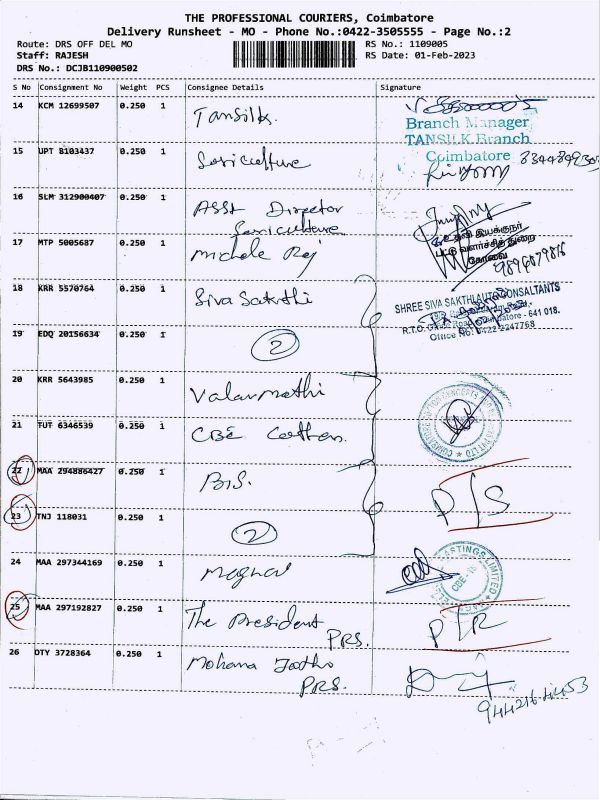 THE PROFESSIONAL COURIERS, Coimbatore
Delivery Runsheet - MO - Phone No.:0422-3505555 - Page No.:2
Route: DRS OFF DEL MO
RS No.: 1109005
Staff: RAJESH
RS Date: 01-Feb-2023
DRS No.: DCJB110900502
S No Consignment No Weight PCS Consignee Details Signature
14 KCM 12699507 0.250 1 Tansilks.
Branch Manager
TANSILK Branch
Coimbatore
15 UPT 8103437 0.250 1 Sericulture
16 SLM 312900407 0.250 1 Asst Director
Sericulture
உதவி இயக்குநர்
பட்டு வளர்ச்சித் துறை
கோவை
17 MTP 5005687 0.250 1 Michele Raj
18 KRR 5570764 0.250 1 Siva Sakthi
SHREE SIVA SAKTHI AUTO CONSULTANTS
19 EDQ 20156634 0.250 1 2
20 KRR 5643985 0.250 1 Valarmathi
21 TUT 6346539 0.250 1 CBE Cotton.
22 MAA 294886427 0.250 1 BIS.
D/S
23 TNJ 118031 0.250 1 2
24 MAA 297344169 0.250 1 Magna
CASTINGS LIMITED
25 MAA 297192827 0.250 1 The President
PRS. P/R
26 OTY 3728364 0.250 1 Mohana Jothi
PRS.